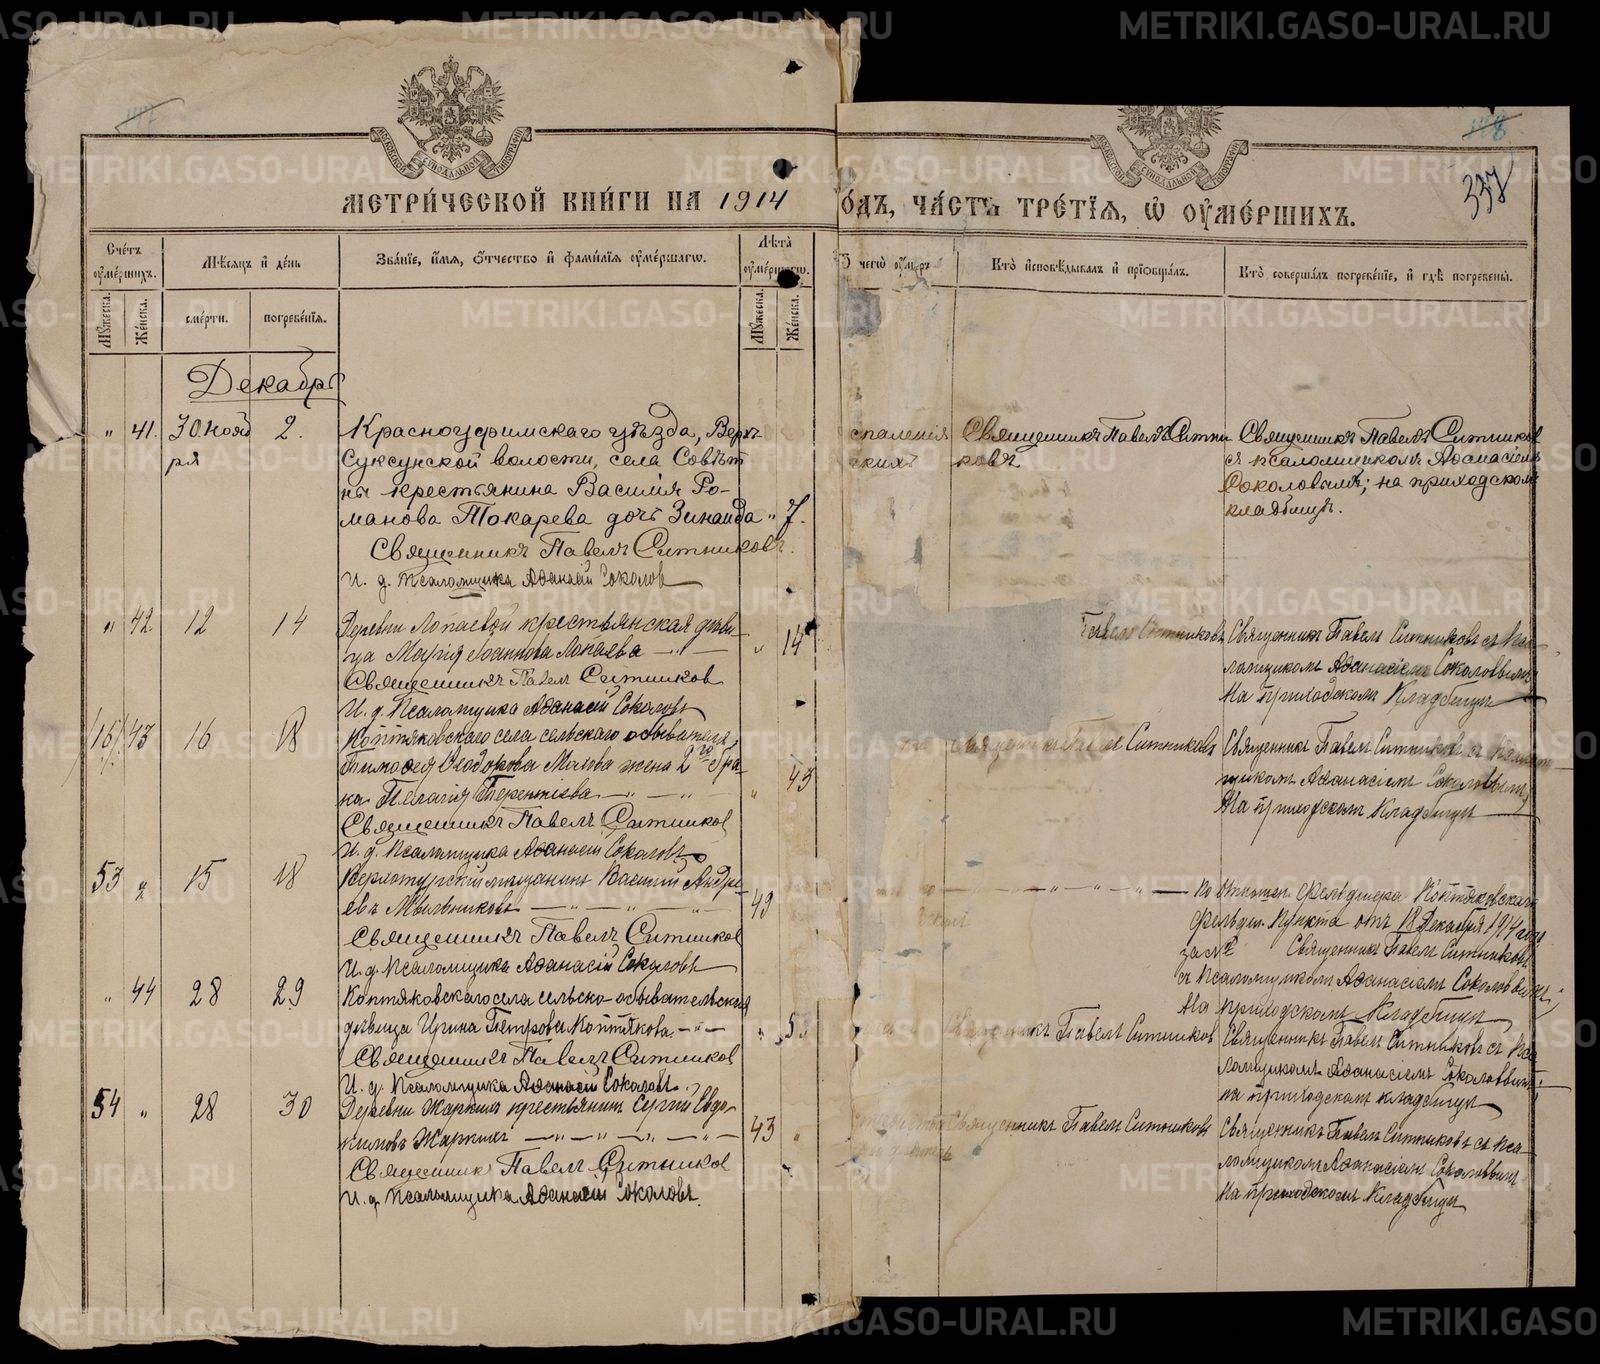 МЕТРИ́ЧЕСКОЙ КНИ́ГИ НА 1914
ОДЪ, ЧА́СТЬ ТРЕ́ТІѦ, Ѡ҆ ОУ҆МЕ́РШИХЪ.
337
Сче́тъ оумершихъ.
Мѣсяцъ и день
Зва́нїе, и҆́мѧ, ѻ҆́тчество и҆ фами́лїѧ оу҆ме́ршагѡ.
Лѣта оумершаго.
ѿ чегѡ оумеръ
Кто исповѣдывалъ и прїобщалъ.
Кто совершалъ погребенїе, и гдѣ погребены.
Мужеска.
Женска.
смерти.
погребенїя.
Мужеска.
Женска.
Декабрь
" 41. 30 Нояб 2. Красноуфимскаго уѣзда, Верхъ-
ря Суксунской волости, села Совѣт
ны крестьянина Василія Ро-
манова Токарева дочь Зинаида " 7.
Священникъ Павелъ Ситниковъ.
И. д. псаломщика Аѳанасій Соколов
спаленія
Священникъ Павелъ Ситни
ковъ
Священникъ Павелъ Ситников
съ псаломщикомъ Аѳанасіемъ
Соколовымъ; на приходском
кладбищѣ.
" 42 12 14 Деревни Лопаевой крестьянская дѣви-
ца Марія Іоаннова Лопаева — " — " 14
Священникъ Павел Ситников
И. д. Псаломщика Аѳанасій Соколовъ
Павелъ Ситниковъ
Священникъ Павелъ Ситниковъ съ Пса-
ломщикомъ Аѳанасіемъ Соколовымъ
На приходскомъ Кладбищѣ
43 16 18 Коптяковскаго села сельскаго обывателя
Тимоѳея Ѳеодорова Махова жена 2го бра-
ка Пелагія Терентіева — " — " 45
Священникъ Павелъ Ситников
И. д. Псаломщика Аѳанасій Соколовъ
Ситниковъ
Священникъ Павелъ Ситниковъ съ Псалом
щикомъ Аѳанасіемъ Соколовымъ
На приходскомъ Кладбищѣ
53 " 15 18 Верхотурскій мѣщанинъ Василій Андре-
евъ Мыльниковъ — " — " — " 49
Священникъ Павелъ Ситников
И. д. Псаломщика Аѳанасій Соколовъ
— " — " — " —
По отношен. Фельдшера Коптяковскаго
Фельдш. Пункта отъ 18 Декабря 1914 года
за № Священникъ Павелъ Ситниковъ
съ Псаломщикомъ Аѳанасіемъ Соколовымъ
На приходскомъ Кладбищѣ
" 44 28 29 Коптяковскаго села сельско-обывательская
дѣвица Ирина Петрова Коптякова — " — " 5
Священникъ Павелъ Ситников
И. д. Псаломщика Аѳанасій Соколовъ.
Священникъ Павелъ Ситников
Священникъ Павелъ Ситниковъ съ Пса
ломщикомъ Аѳанасіемъ Соколовымъ
на приходскомъ кладбищѣ
54 " 28 30 Деревни Жаркихъ крестьянинъ Сергій Евдо-
кимовъ Жаркихъ — " — " — " — " — 43 "
Священник Павелъ Ситников
И. д. Псаломщика Аѳанасій Соколовъ.
Священникъ Павелъ Ситниковъ
Священникъ Павелъ Ситниковъ съ Пса-
ломщикомъ Аѳанасіемъ Соколовымъ
На приходскомъ Кладбищѣ
METRIKI.GASO-URAL.RU